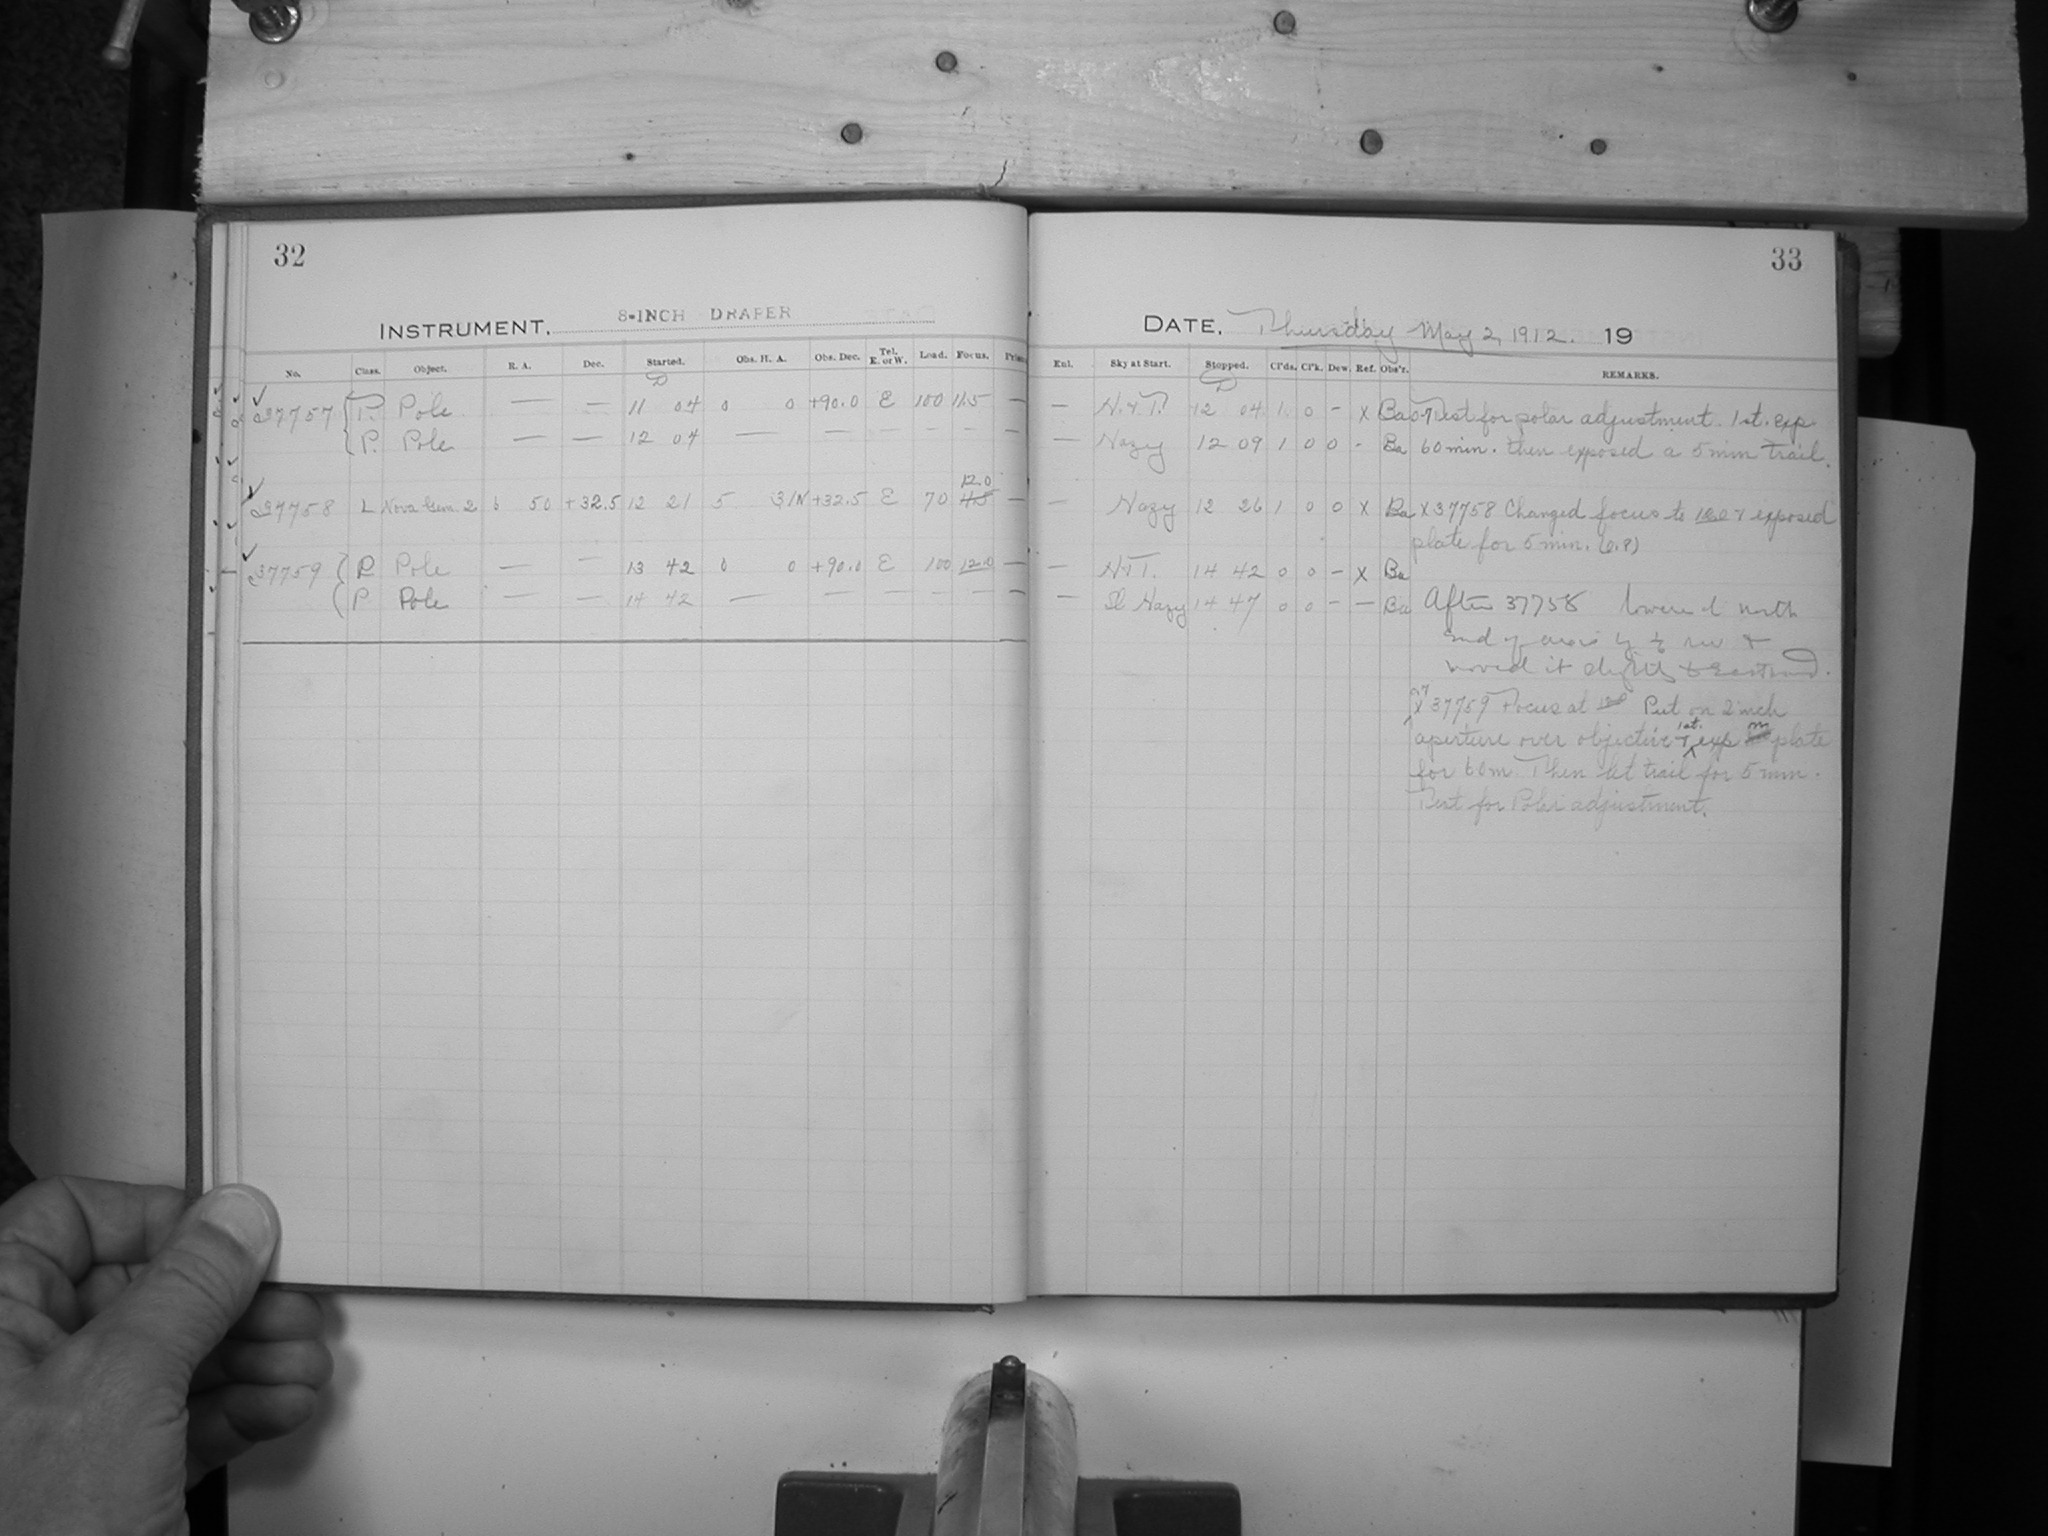 32
INSTRUMENT. 8-INCH DRAPER
No. Class. Object. R. A. Dec. Started. Obs. H. A. Obs. Dec. Tel. E. or W. Load. Focus.
37757 P. Pole — — 11 04 0 0 +90.0 E 100 11.5 —
P. Pole — — 12 04 — — — — — —
12.0
37758 L Nova Gem. 2 6 50 +32.5 12 21 5 31W +32.5 E 70 —
37759 P Pole — — 13 42 0 0 +90.0 E 100 12.0 —
P Pole — — 14 42 — — — — — —
33
DATE. Thursday May 2, 1912. 19
Enl. Sky at Start. Stopped. Cl'ds. Cl'k. Dew. Ref. Obs'r. REMARKS.
— 12 04 1 0 – x Ba Test for polar adjustment. 1st. exp.
— Hazy 12 09 1 0 0 - Ba 60 min. then exposed a 5 min trail.
— Hazy 12 26 1 0 0 X Ba X 37758 Changed focus to 12.0 & exposed
plate for 5 min.
— 14 42 0 0 – X Ba
— Sl Hazy 14 47 0 0 – — Ba After 37758 lowered north
end of axis by ½ rev &
moved it slightly to Eastward.
X 37759 Focus at 12.0 Put on 2 inch
aperture over objective & 1st. exp plate
for 60m. Then let trail for 5 min.
Test for Polar adjustment.